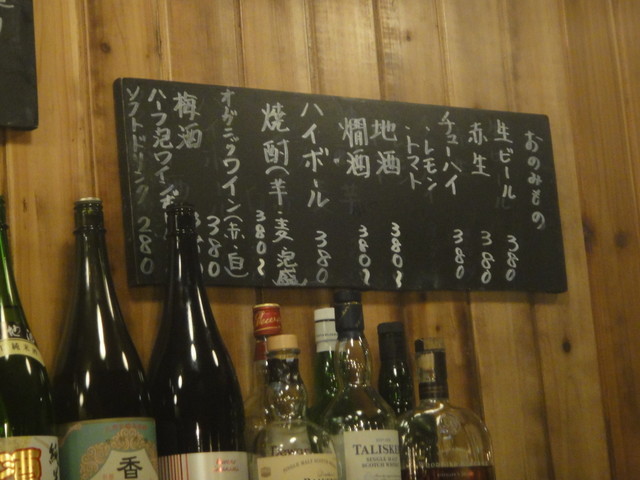 おのみもの
生ビール 380
赤生 380
チューハイ 380
・レモン
・トマト
地酒 380〜
燗酒 380〜
ハイボール 380
焼酎(芋・麦・泡盛) 380〜
オーガニックワイン(赤・白)
梅酒 380
ハーフ泡ワイン
ソフトドリンク 280
香
TALISKER
SINGLE MALT
SCOTCH WHISKY
SINGLE MALT